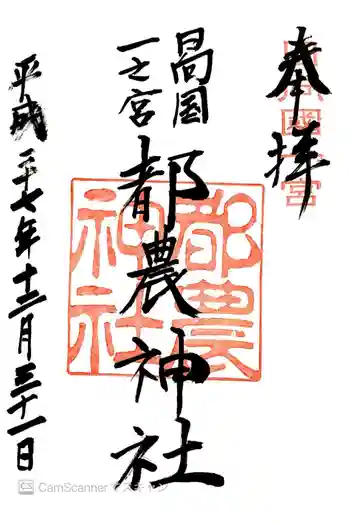 奉拝
日向国
一之宮
都農神社
平成二十七年十二月三十一日
日向國一宮
都農
神社
CS CamScanner でスキャン